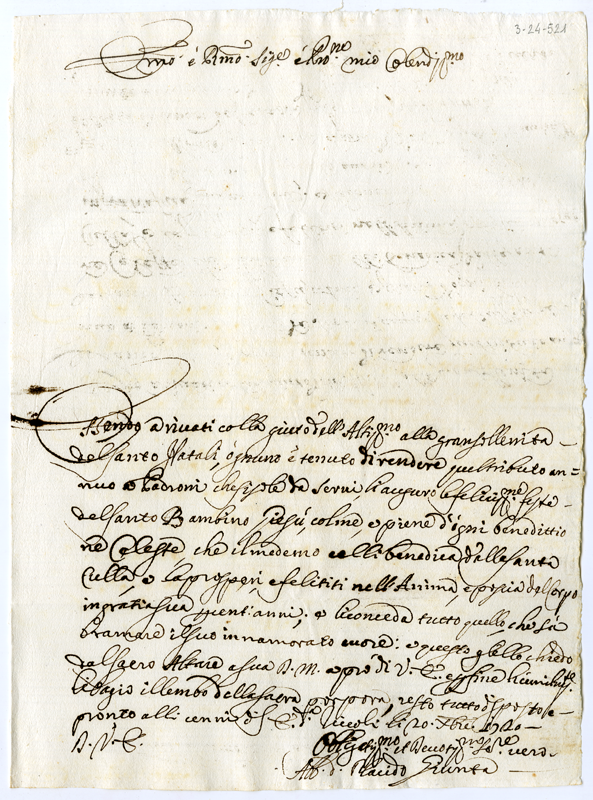 3-24-521
Emo: é Rmo: Sigr: é Pro:ne mio Colendissmo
Sendo arivati colla giuto dell'Altissmo alla gran sollenità
del Santo Natali, ógnuno è tenuto di rendere quel tributo an=
nuo a Padroni che si sole da servi li auguro le felicissme feste
del Santo Bambino Jiesú, colme, e piene d'ógni benedittio
ne Celeste che il medemo celli benedica dalla santa
culla, e la prosperi, e feliciti nell'Anima, e poscia del Corpo
in gratia sua quent'anni; e li conceda tutto quello, che sà
bramare il suo innamorato cuore: e questo gl'ello chiedo
dal sacro Altare a sua D. M. a prò di V. E. e per fine
li bagio il lembo della sacra porpora, resto tutto disposto e
pronto alli cenni di S. E. Li 20. 1720
D. V. E.
Obligatissmo et Devotissmo vero
Ab. D. Placido Giunta